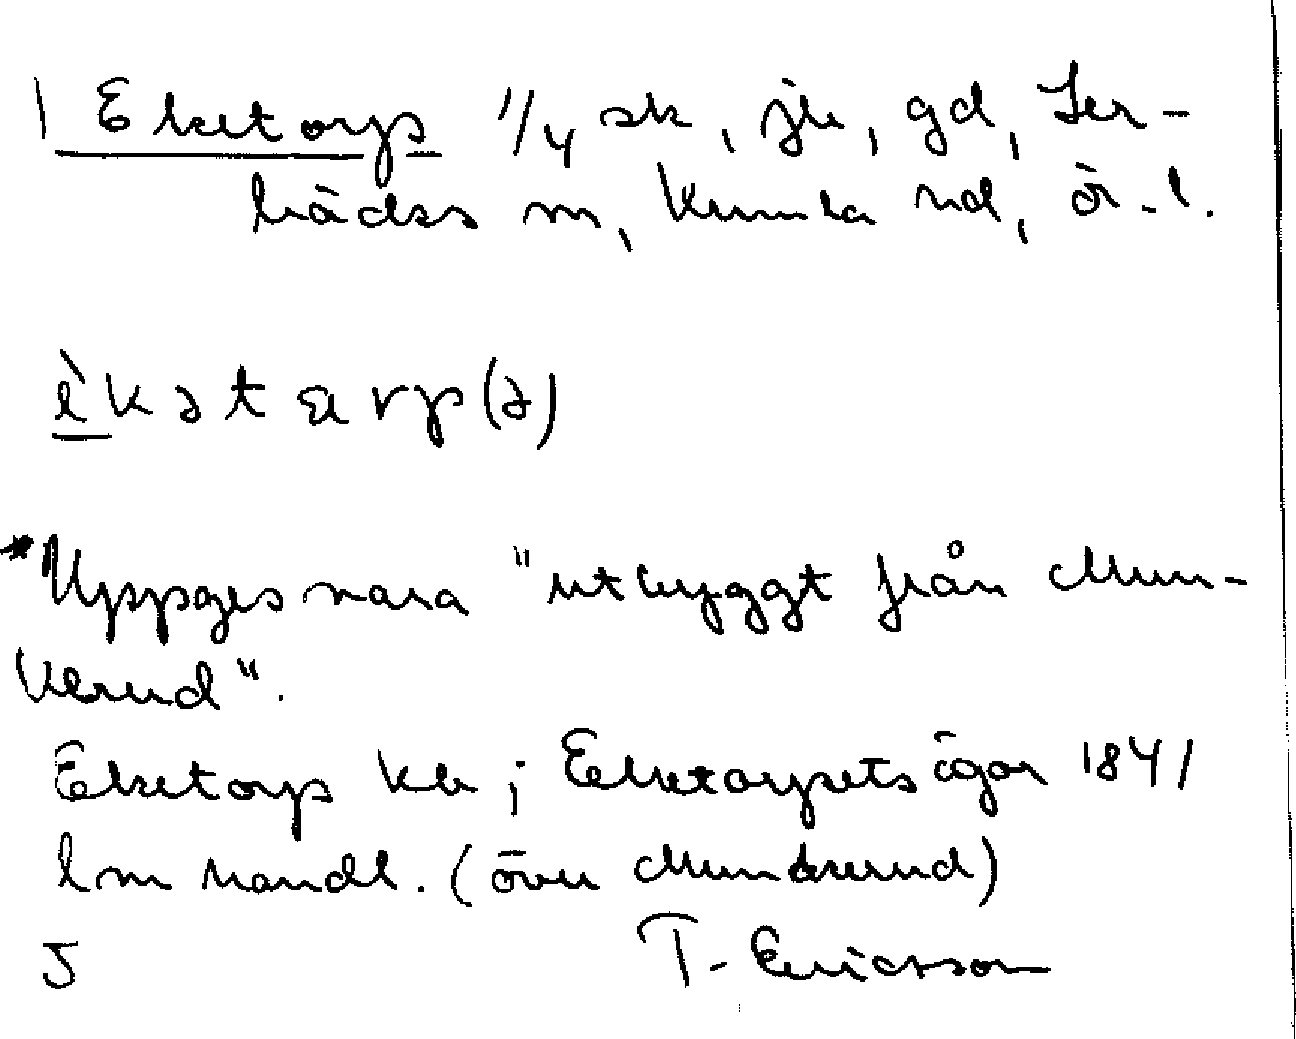 1 Eketorp 1/4 sk, jb, gd, Ler-
bäcks sn, Kumla hd, Ör. l.
èkətɑrp(ə)
*Uppges vara "utbyggt från Mun-
kerud".
Eketorp kb; Eketorpets ägor 1841
lm handl. (över Munkerud)
J T. Ericsson